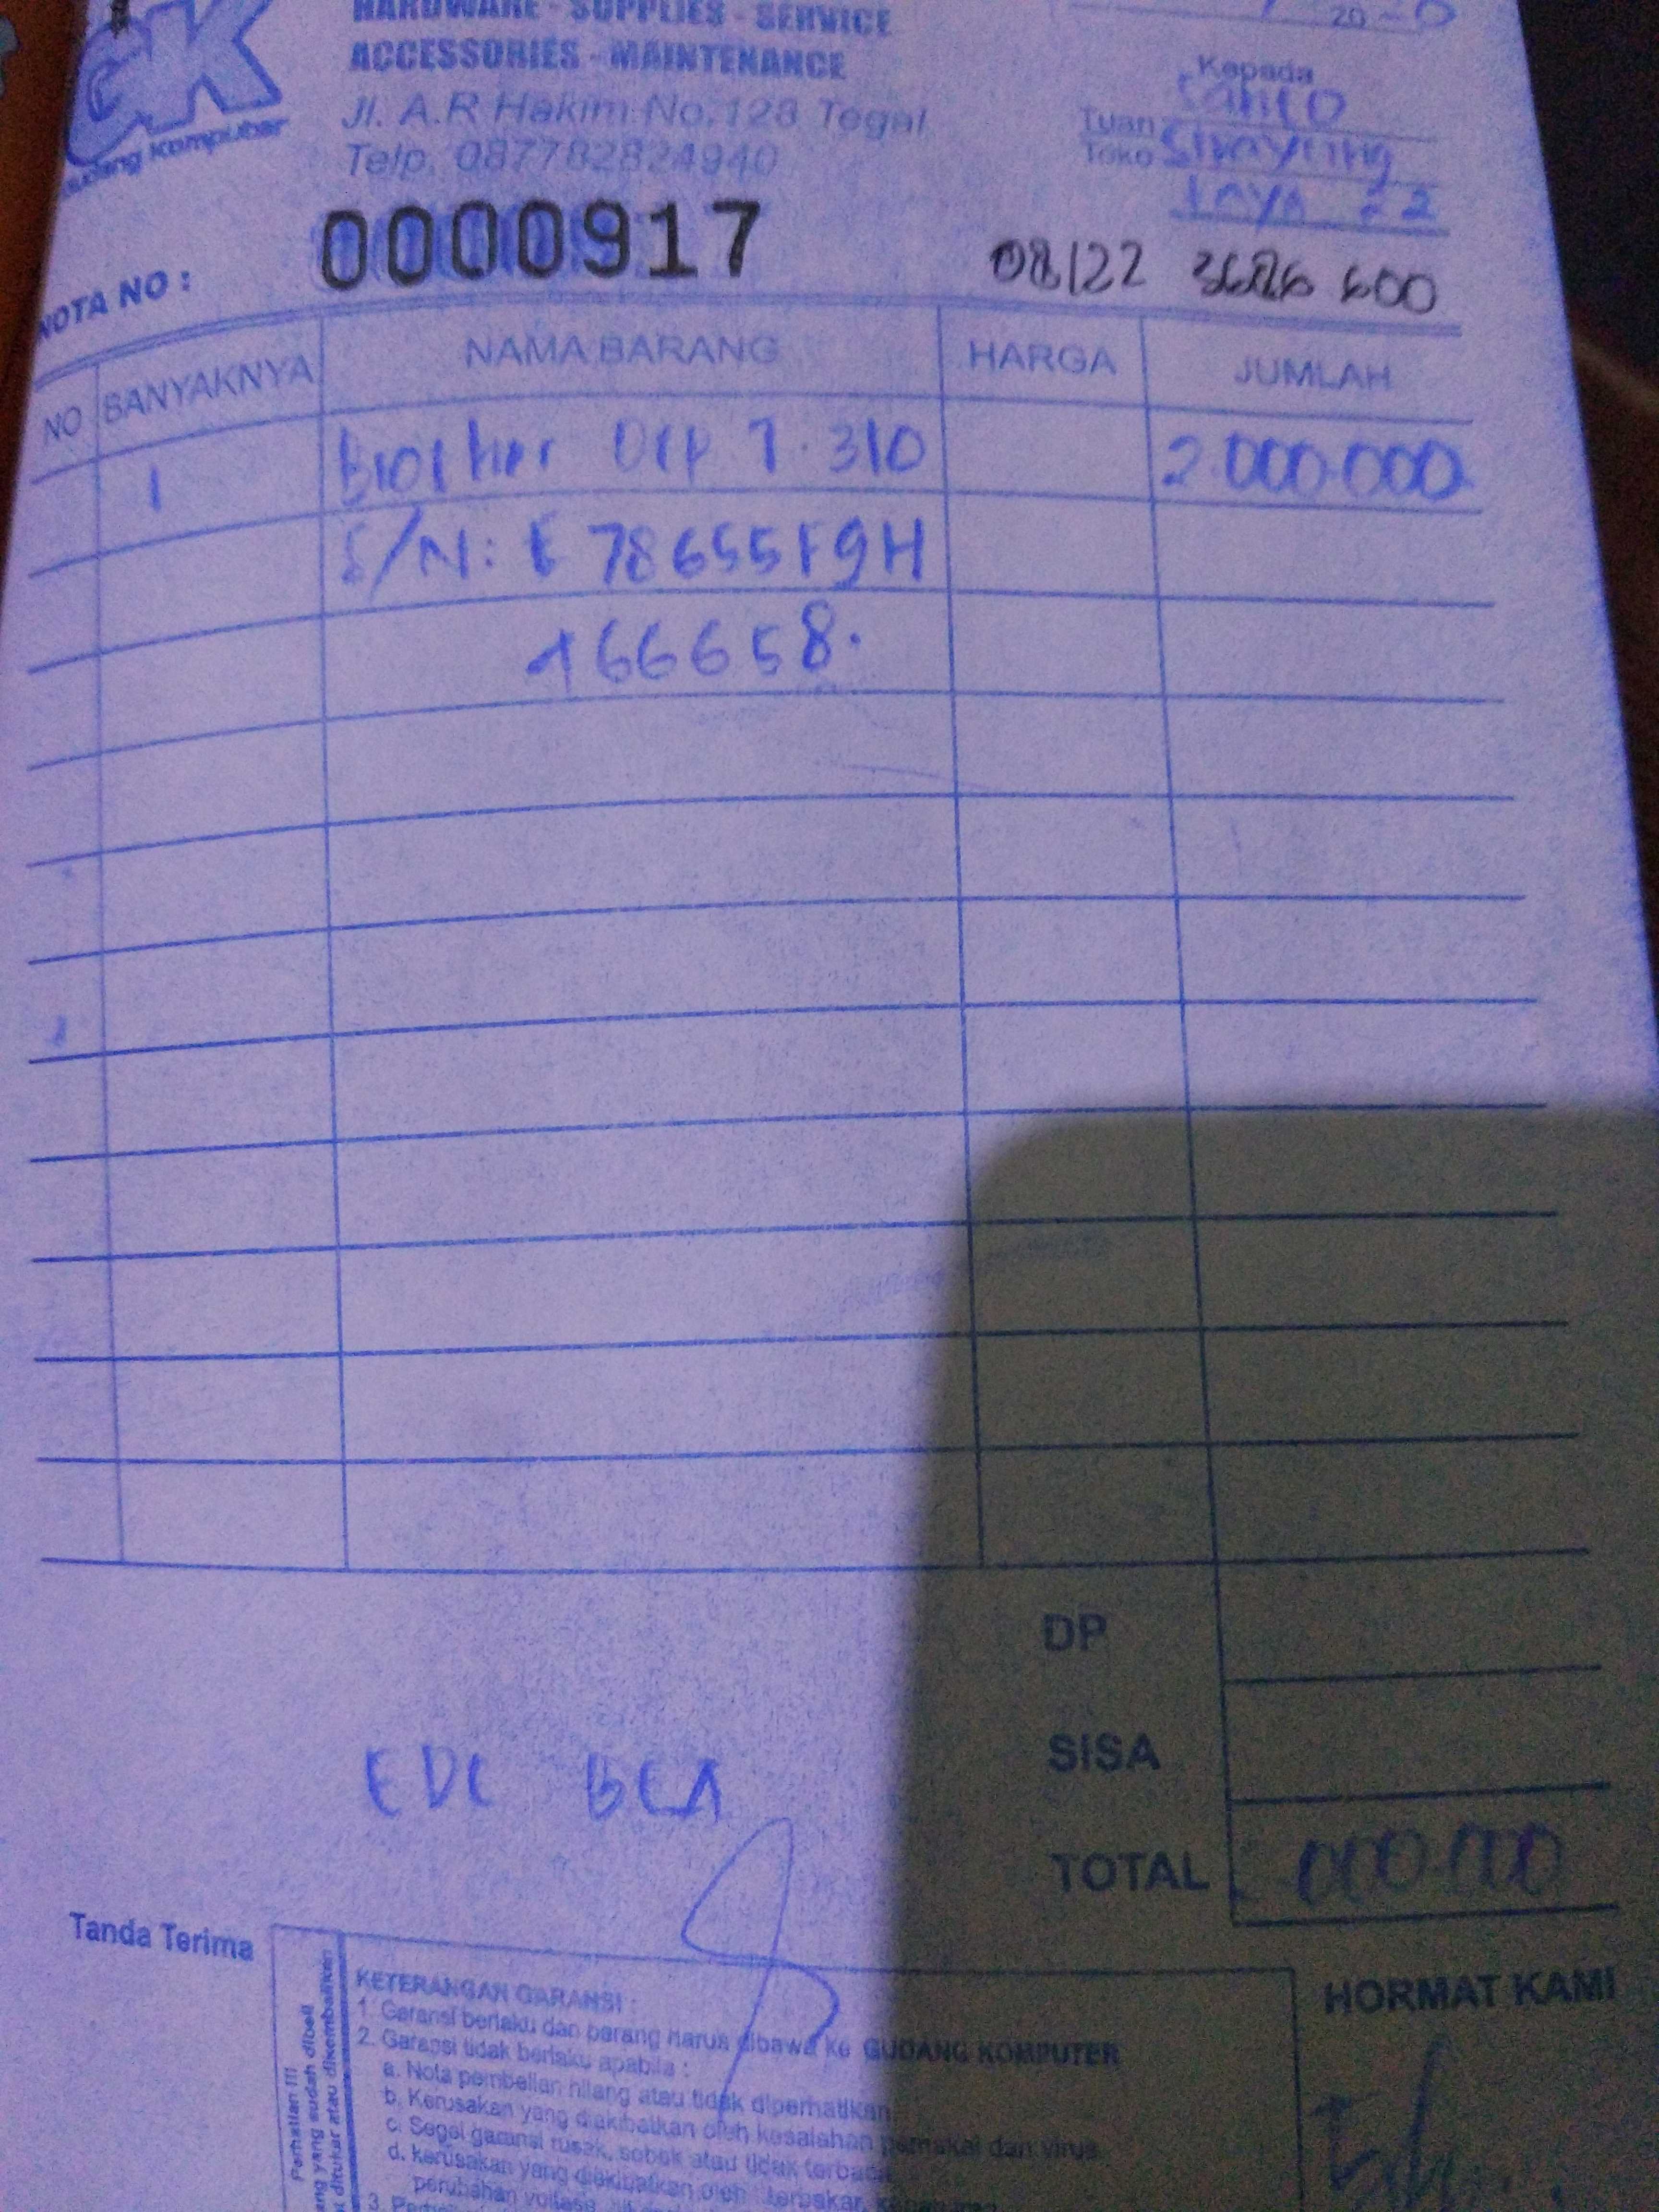 HARDWARE - SUPPLIES - SERVICE
ACCESSORIES - MAINTENANCE
Jl. A.R Hakim No.128 Tegal
Telp. 087782824940
GK
Gudang Komputer
20
Kepada
Tuan
Toko
22
NOTA NO :
0000917
08122 3686 600
NO
BANYAKNYA
NAMA BARANG
HARGA
JUMLAH
1
Brother Dcp T.310
2.000.000
S/N: E 78655F9H
166658.
DP
SISA
EDC BCA
TOTAL
000.000
Tanda Terima
HORMAT KAMI
Perhatian !!!
yang sudah dibeli
ditukar atau dikembalikan
KETERANGAN GARANSI :
1. Garansi berlaku dan barang harus dibawa ke GUDANG KOMPUTER
2. Garansi tidak berlaku apabila :
a. Nota pembelian hilang atau tidak diperhatikan
b. Kerusakan yang diakibatkan oleh kesalahan pemakai dan virus
c. Segel garansi rusak, sobek atau tidak terbaca
d. kerusakan yang diakibatkan oleh : terbakar,
perubahan voltase,
3.